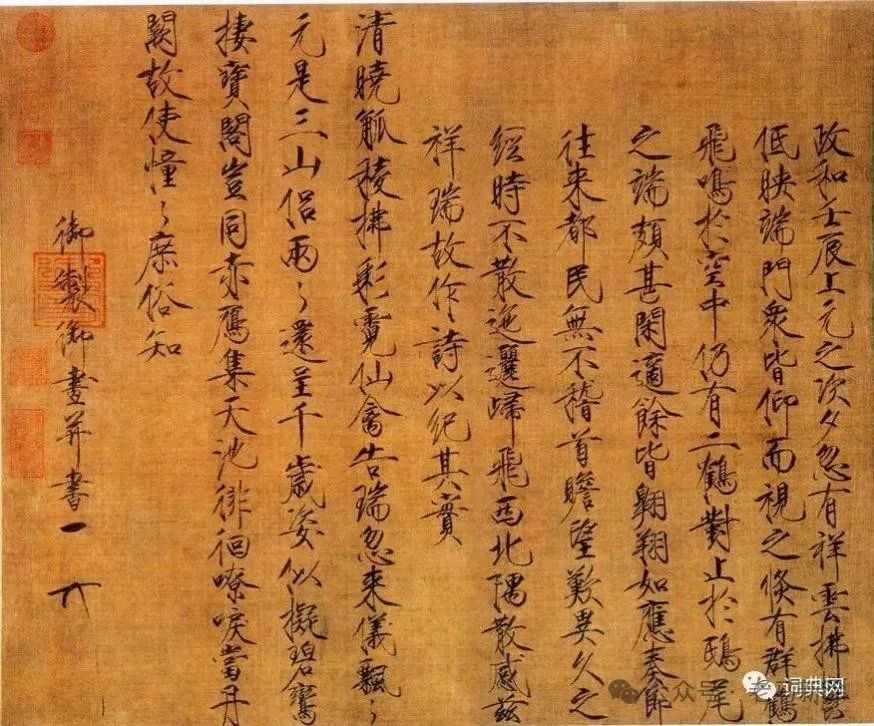 政和壬辰上元之次夕忽有祥雲拂
低映端門衆皆仰而視之倏有群鶴
飛鳴於空中仍有二鶴對止於鴟尾
之端頗甚閑適餘皆翱翔如應奏節
往来都民無不稽首瞻望歎異久之
經時不散迤邐歸飛西北隅散感兹
祥瑞故作詩以紀其實
清曉觚稜拂彩霓仙禽告瑞忽来儀飄々
元是三山侣兩々還呈千歲姿似擬碧鸞
棲寶閣豈同赤鴈集天池徘徊嘹唳當丹
闕故使憧々庶俗知
御製御畫并書
词典网